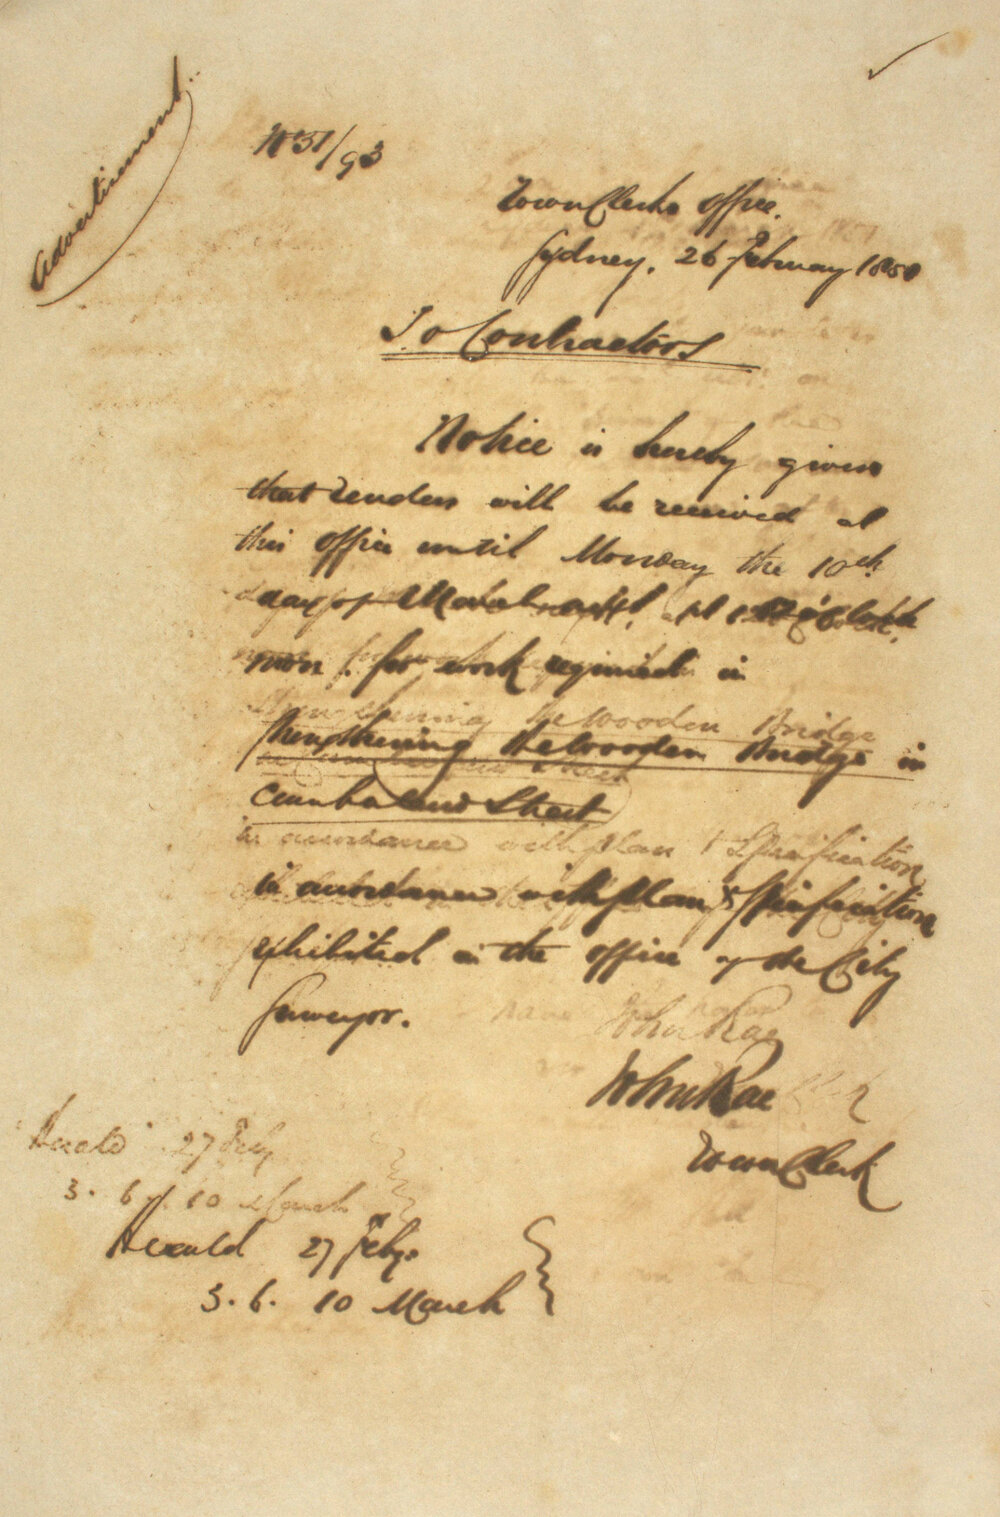 Advertisement
No 51/93
Town Clerks office.
Sydney. 26 February 1851
To Contractors
Notice is hereby given
that tenders will be received at
this office until Monday the 10th
day of March next, at 12 o'Clock
noon, for work required in
strengthening the Wooden Bridge in
Cumberland Street
in accordance with plan & specification
exhibited in the office of the City
Surveyor.
John Rae
Town Clerk
Herald 27 Feby.
3. 6. 10 March